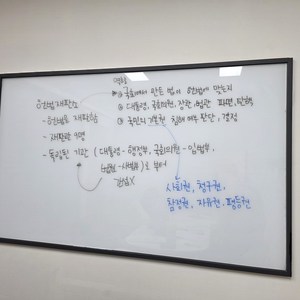 헌법재판소
- 헌법을 재판함
- 재판관 9명
- 독립된 기관 (대통령-행정부, 국회의원-입법부,
법원-사법부)로 부터
간섭X
역할
① 국회에서 만든 법이 헌법에 맞는지
② 대통령, 국회의원, 장관, 법관 파면, 탄핵
③ 국민의 기본권 침해 여부 판단, 결정
사회권, 청구권,
참정권, 자유권, 평등권